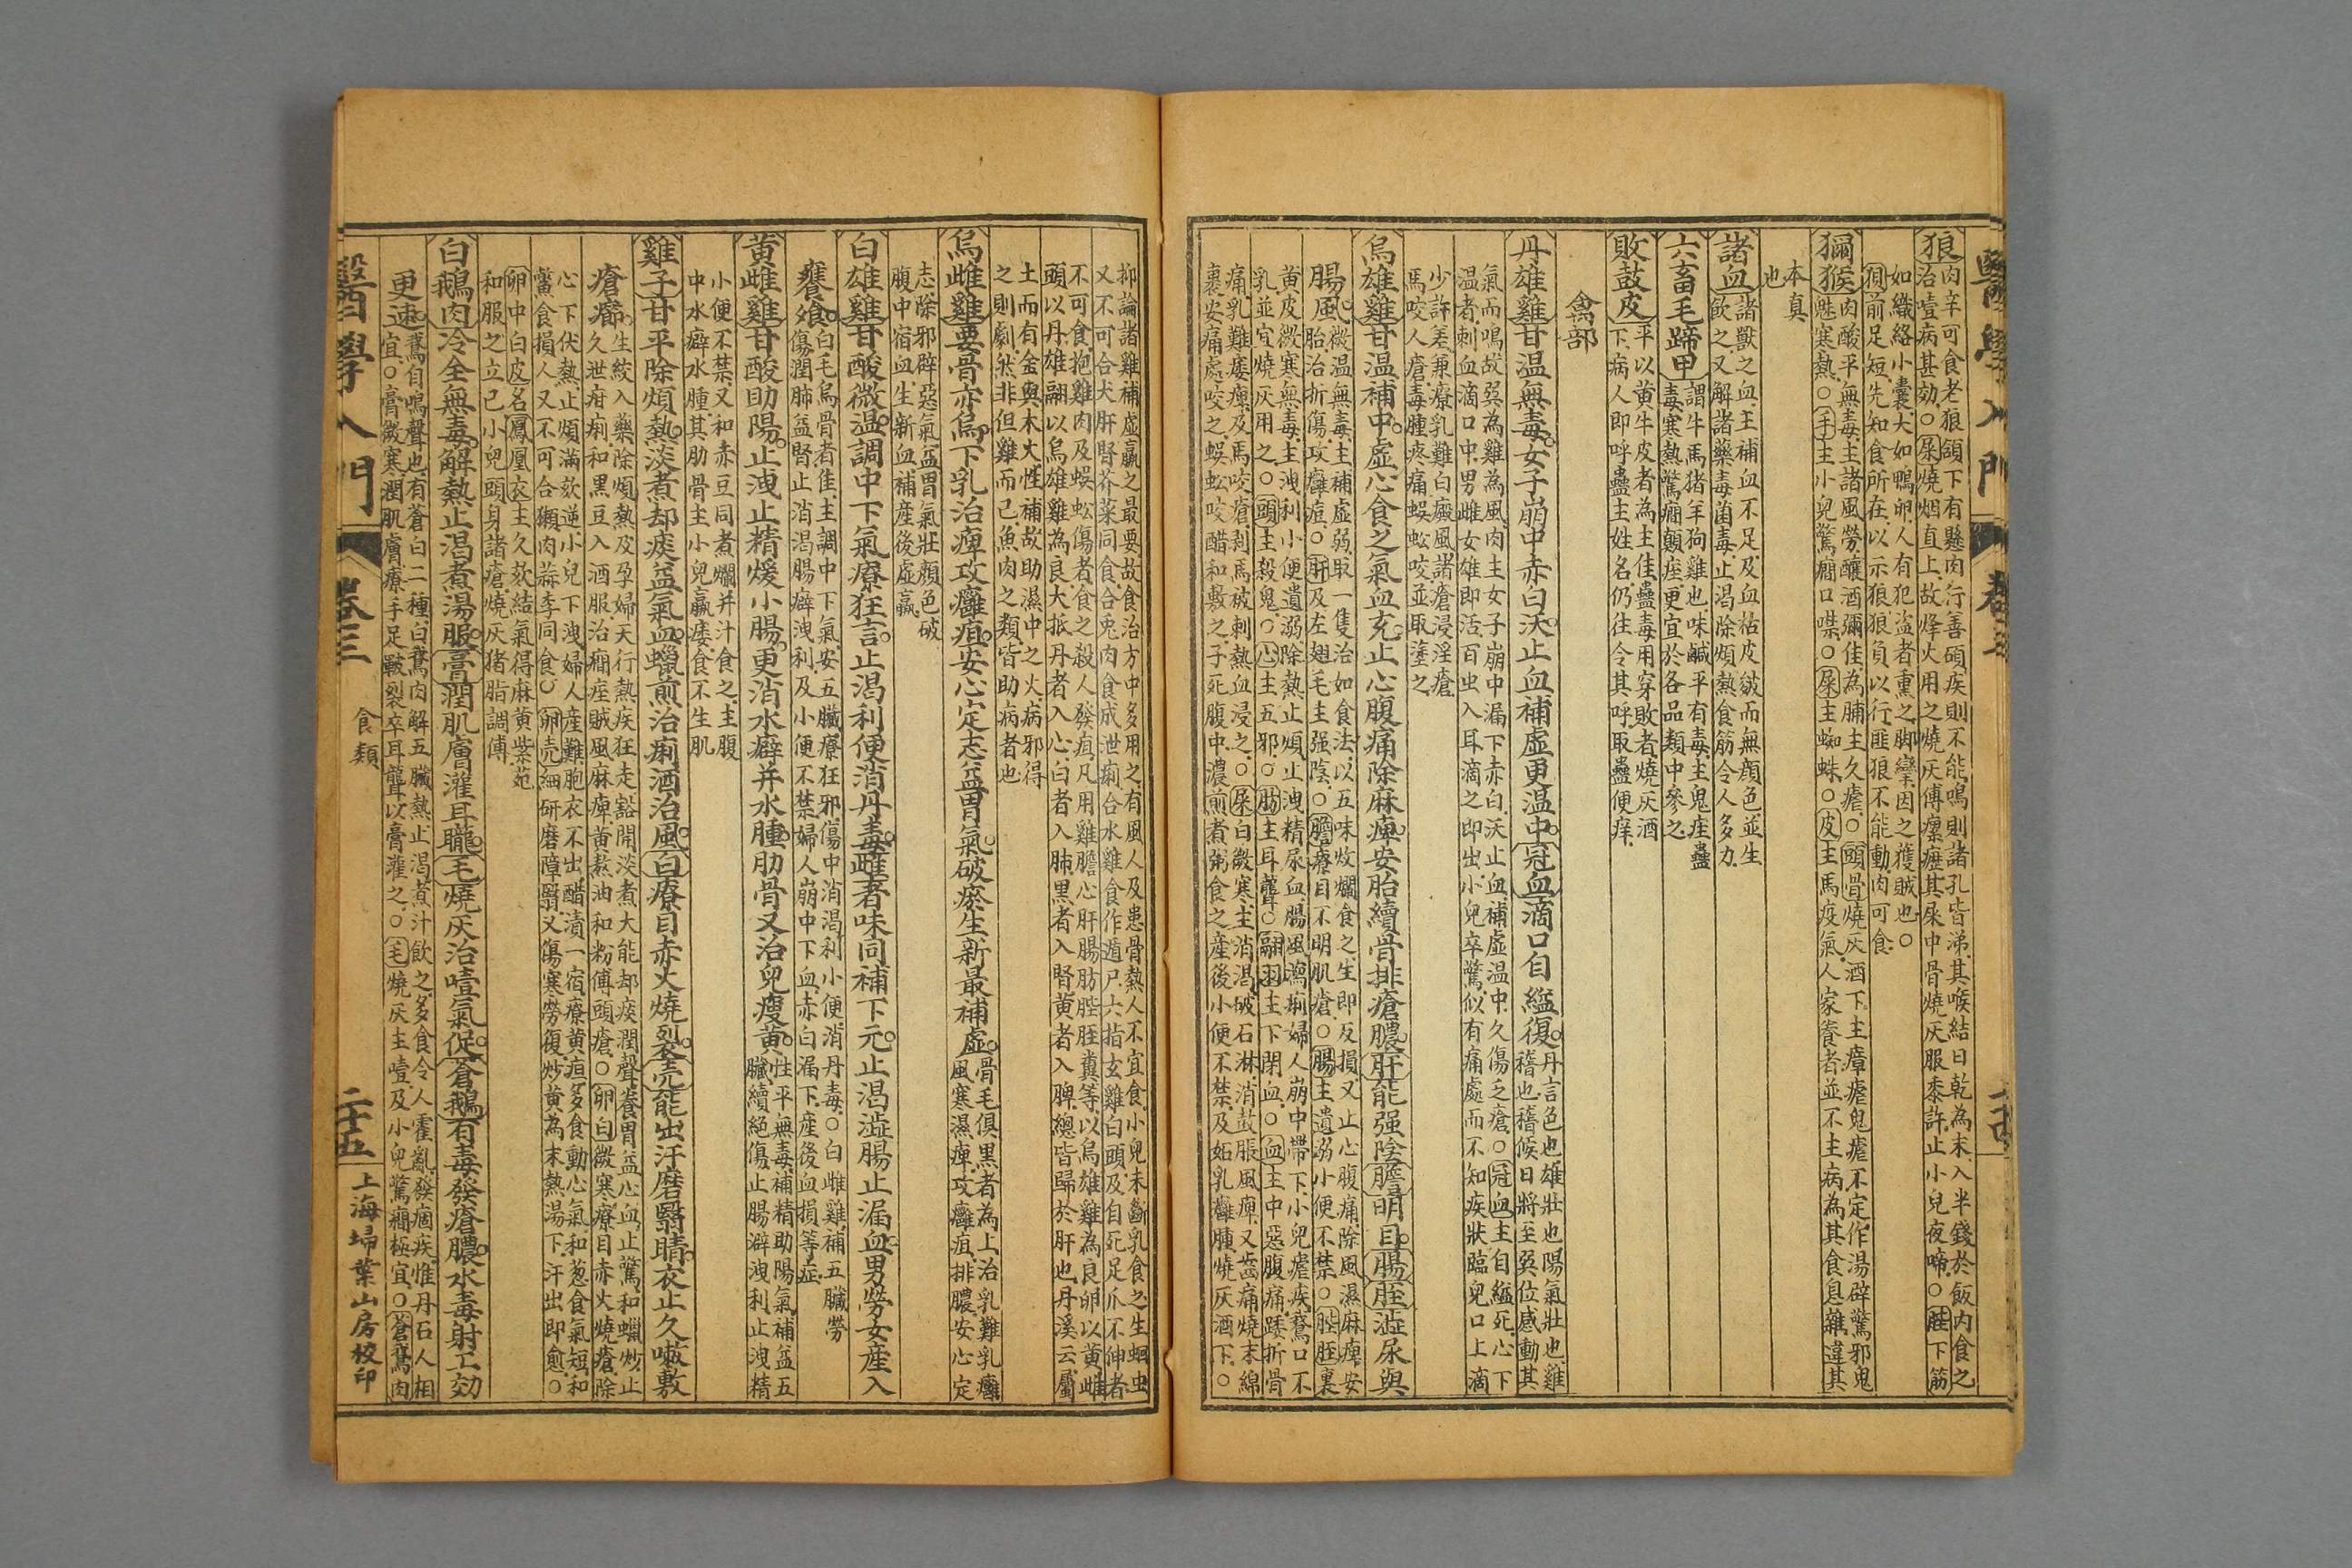 醫學入門
卷三
狼
肉辛可食老狼頷下有懸肉行善碩疾則不能鳴則諸孔皆涕其喉結日乾為末入半錢於飯內食之
治噎病甚効○屎燒烟直上故烽火用之燒灰傅瘰癧其屎中骨燒灰服黍許止小兒夜啼○䏶下筋
如織絡小囊大如鴨卵人有犯盜者熏之脚攣因之獲賊也○
前足短先知食所在以示狼狼負以行匪狼不能動肉可食
獼猴
肉酸平無毒主諸風勞釀酒彌佳為脯主久瘧○頭骨燒灰酒下主瘴瘧鬼瘧不定作湯辟驚邪鬼
魅寒熱○手主小兒驚癎口噤○屎主蜘蛛○皮主馬疫氣人家養者並不主病為其食息雜違其
本真
也
諸血
諸獸之血主補血不足及血枯皮皴而無顏色並生
飲之又解諸藥毒菌毒止渴除煩熱食筋令人多力
六畜毛蹄甲
謂牛馬猪羊狗雞也味鹹平有毒主鬼疰蠱
毒寒熱驚癎顛痓更宜於各品類中參之
敗鼓皮
平以黃牛皮者為主佳蠱毒用穿敗者燒灰酒
下病人即呼蠱主姓名仍往令其呼取蠱便瘥
禽部
丹雄雞甘溫無毒女子崩中赤白沃止血補虛更溫中冠血滴口自縊復
丹言色也雄壯也陽氣壯也雞
稽也稽候日將至巽位感動其
氣而鳴故巽為雞為風肉主女子崩中漏下赤白沃止血補虛溫中久傷乏瘡○冠血主自縊死心下
溫者刺血滴口中男雌女雄即活百虫入耳滴之即出小兒卒驚似有痛處而不知疾狀臨兒口上滴
少許差兼療乳難白癜風諸瘡浸淫瘡
馬咬人瘡毒腫疼痛蜈蚣咬並取塗之
烏雄雞甘溫補中虛心食之氣血充止心腹痛除麻痺安胎續骨排瘡膿肝能强陰膽明目腸䏶澁尿與
腸風
微溫無毒主補虛弱取一隻治如食法以五味炆爛食之生即反損又止心腹痛除風濕麻痺安
胎治折傷攻癰疽○肝及左翅毛主强陰○膽療目不明肌瘡○腸主遺溺小便不禁○䏶䏶裏
黃皮微寒無毒主洩利小便遺溺除熱止煩止洩精尿血腸風瀉痢婦人崩中帶下小兒瘧疾鵞口不
乳並宜燒灰用之○頭主殺鬼○心主五邪○肪主耳聾○翮羽主下閉血○血主中惡腹痛踒折骨
痛乳難瘻瘡及馬咬瘡剥馬被刺熱血浸之○屎白微寒主消渴破石淋消鼓脹風痺又齒痛燒末綿
裹安痛處咬之蜈蚣咬醋和敷之子死腹中濃煎煮粥食之產後小便不禁及妬乳癰腫燒灰酒下○
抑論諸雞補虛羸之最要故食治方中多用之有風人及患骨熱人不宜食小兒未斷乳食之生蛔虫
又不可合犬肝腎芥菜同食合兎肉食成泄痢合水雞食作遁尸六指玄雞白頭及自死足爪不伸者
不可食抱雞肉及蜈蚣傷者食之殺人發疽凡用雞膽心肝腸肪䏶䏶糞等以烏雄雞為良卵以黃雌
頭以丹雄翮以烏雄雞為良大抵丹者入心白者入肺黑者入腎黃者入脾總皆歸於肝也丹溪云屬
土而有金與木火性補故助濕中之火病邪得
之則劇然非但雞而已魚肉之類皆助病者也
烏雌雞要骨亦烏下乳治痺攻癰疽安心定志益胃氣破瘀生新最補虛
骨毛俱黑者為上治乳難乳癰
風寒濕痺攻癰疽排膿安心定
志除邪辟惡氣益胃氣壯顏色破
腹中宿血生新血補產後虛羸
白雄雞甘酸微溫調中下氣療狂言止渴利便消丹毒雌者味同補下元止渴澁腸止漏血男勞女產入
饔飧
白毛烏骨者佳主調中下氣安五臟療狂邪傷中消渴利小便消丹毒○白雌雞補五臟勞
傷潤肺益腎止消渴腸癖洩利及小便不禁婦人崩中下血赤白漏下產後血損等症
黃雌雞甘酸助陽止洩止精煖小腸更消水癖并水腫肋骨又治兒瘦黃
性平無毒補精助陽氣補益五
臟續絕傷止腸澼洩利止洩精
小便不禁又和赤豆同煮爛并汁食之主腹
中水癖水腫其肋骨主小兒羸瘦食不生肌
雞子甘平除煩熱淡煮却痰益氣血蠟煎治痢酒治風白療目赤火燒裂壳能出汗磨翳睛衣止久嗽敷
瘡癤
生絞入藥除煩熱及孕婦天行熱疾狂走豁開淡煮大能却痰潤聲養胃益心血止驚和蠟炒止
久泄疳痢和黑豆入酒服治癇痓賊風麻痺黃熬油和粉傅頭瘡○卵白微寒療目赤火燒瘡除
心下伏熱止煩滿欬逆小兒下洩婦人產難胞衣不出醋漬一宿療黃疸多食動心氣和葱食氣短和
鱉食損人又不可合獺肉蒜李同食○卵壳細研磨障翳又傷寒勞復炒黃為末熱湯下汗出即愈○
卵中白皮名鳳凰衣主久欬結氣得麻黃紫苑
和服之立已小兒頭身諸瘡燒灰猪脂調傅
白鵝肉冷全無毒解熱止渴煮湯服膏潤肌膚灌耳聾毛燒灰治噎氣促蒼鵝有毒發瘡膿水毒射工効
更速
鵞自鳴聲也有蒼白二種白鵞肉解五臟熱止渴煮汁飲之多食令人霍亂發痼疾惟丹石人相
宜○膏微寒潤肌膚療手足皸裂卒耳聾以膏灌之○毛燒灰主噎及小兒驚癎極宜○蒼鵞肉
醫學入門
卷三
食類
二十五
上海埽葉山房校印